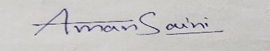 Aman Saini